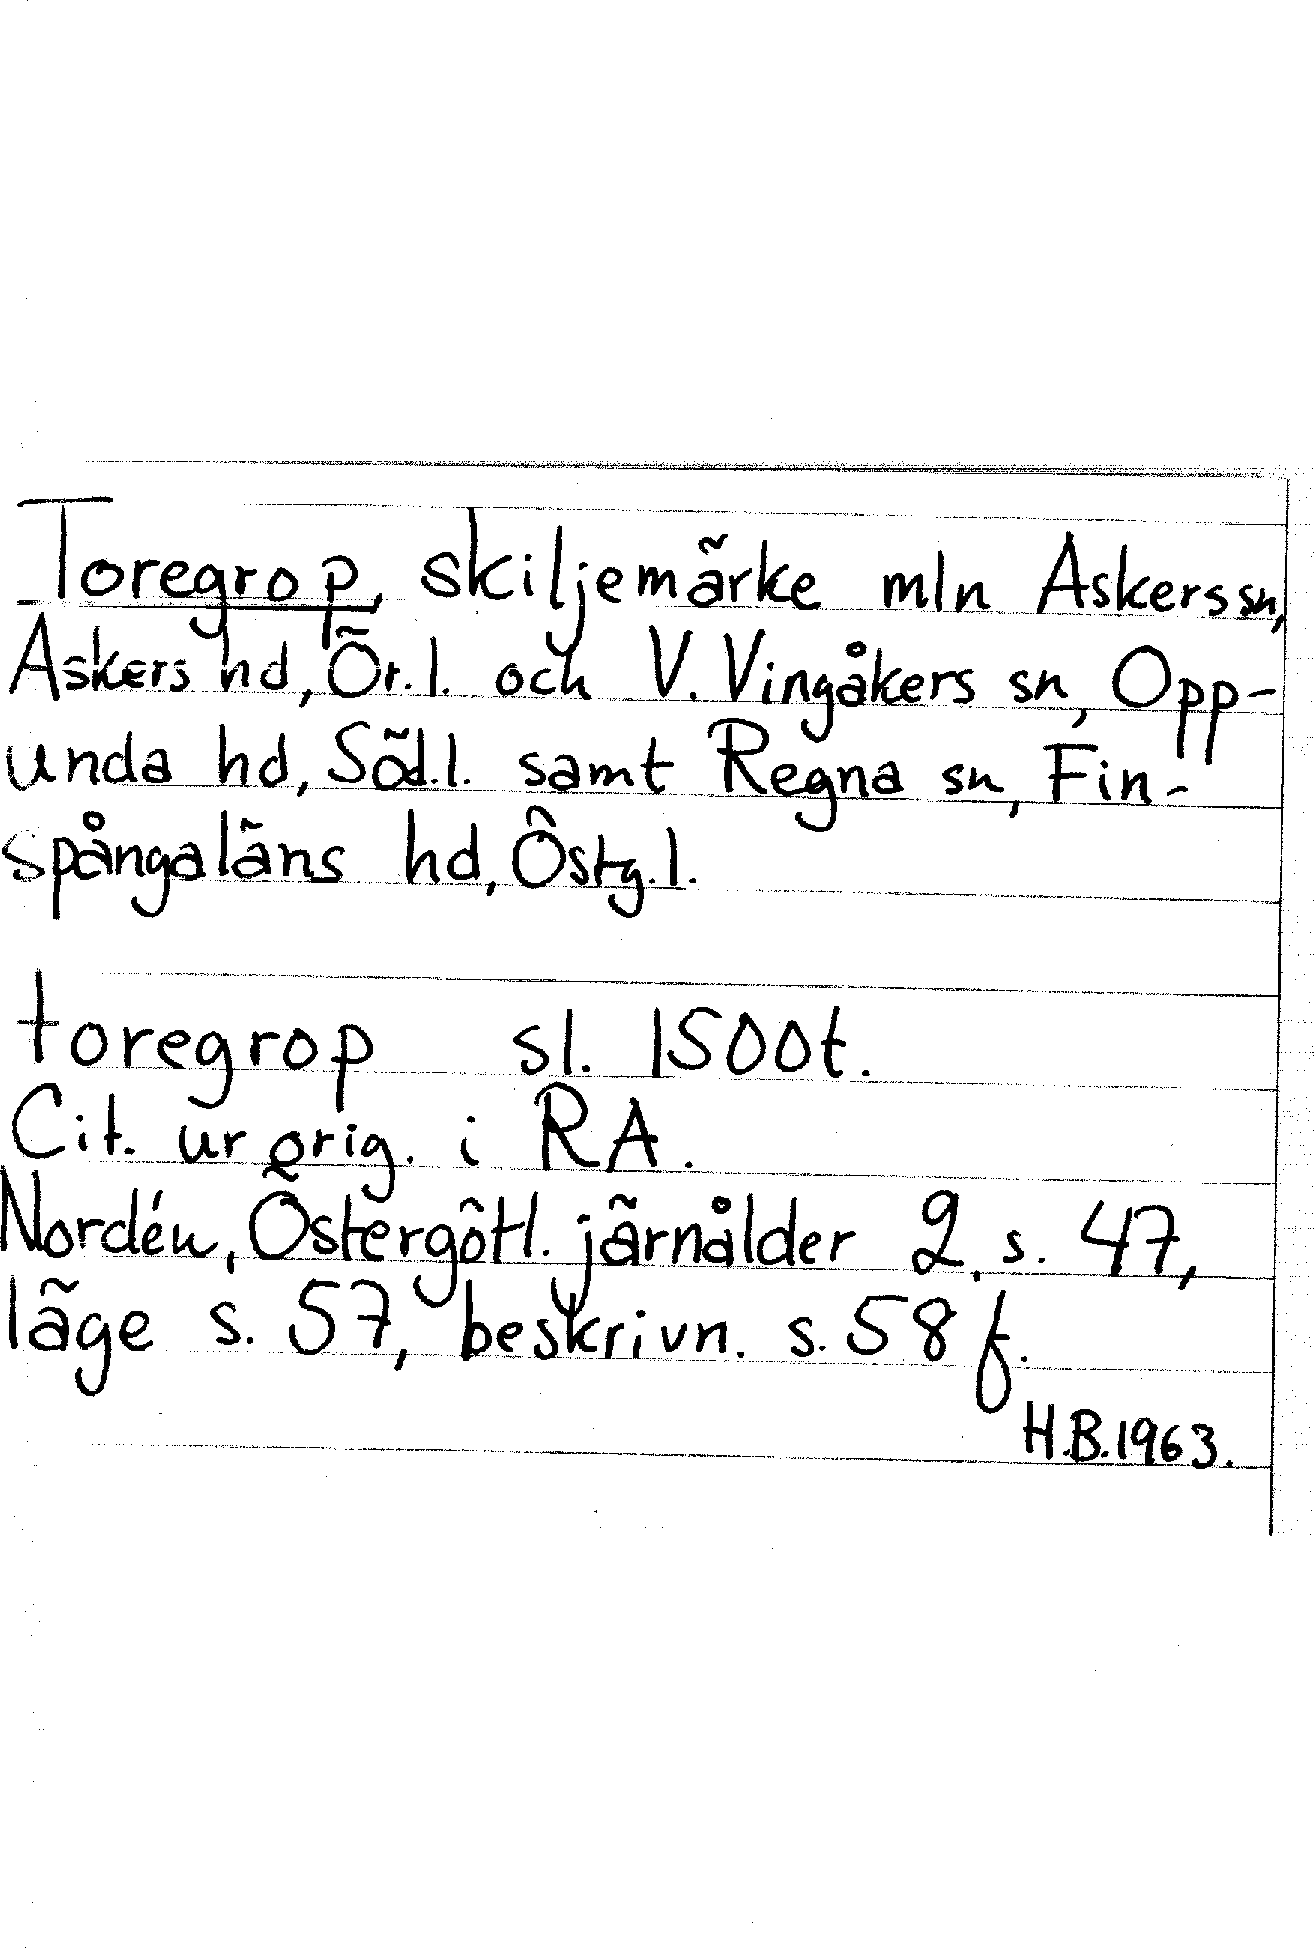 Toregrop, skiljemärke mln Askers sn,
Askers hd, Ör.l. och V. Vingåkers sn, Opp-
unda hd, Söd.l. samt Regna sn, Fin-
spångaläns hd, Östg.l.
toregrop sl. 1500t.
Cit. ur orig. i RA.
Nordén, Östergötl. järnålder 2, s. 47,
läge s. 57, beskrivn. s. 58 f.
H.B.1963.